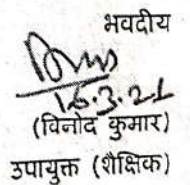 भवदीय
16.3.21
(विनोद कुमार)
उपायुक्त (शैक्षिक)